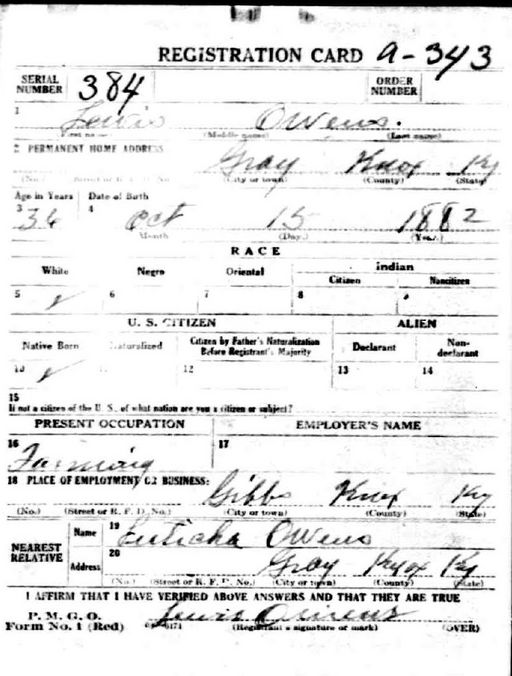 REGISTRATION CARD a-343
SERIAL NUMBER 384 ORDER NUMBER
1 Lewis Owens.
First name (Middle name) (Last name)
2 PERMANENT HOME ADDRESS
Gray Knox Ky
(No.) (Street or R. F. D. No.) (City or town) (County) (State)
Age in Years Date of Birth
3 36 4 Oct 15 1882
Month (Day.) (Year.)
RACE
White Negro Oriental Indian
Citizen Noncitizen
5 6 7 8 9
U. S. CITIZEN ALIEN
Native Born Naturalized Citizen by Father's Naturalization Before Registrant's Majority Declarant Non-declarant
10 12 13 14
15
If not a citizen of the U. S., of what nation are you a citizen or subject?
PRESENT OCCUPATION EMPLOYER'S NAME
16 17
Farming
18 PLACE OF EMPLOYMENT OR BUSINESS:
Gibbs Knox Ky
(No.) (Street or R. F. D. No.) (City or town) (County) (State)
NEAREST RELATIVE
Name 19 Owens
Address 20 Gray Knox Ky
(No.) (Street or R. F. D. No.) (City or town) (County) (State)
I AFFIRM THAT I HAVE VERIFIED ABOVE ANSWERS AND THAT THEY ARE TRUE
P. M. G. O.
Form No. 1 (Red) Lewis Owens
(Registrant's signature or mark) (OVER)